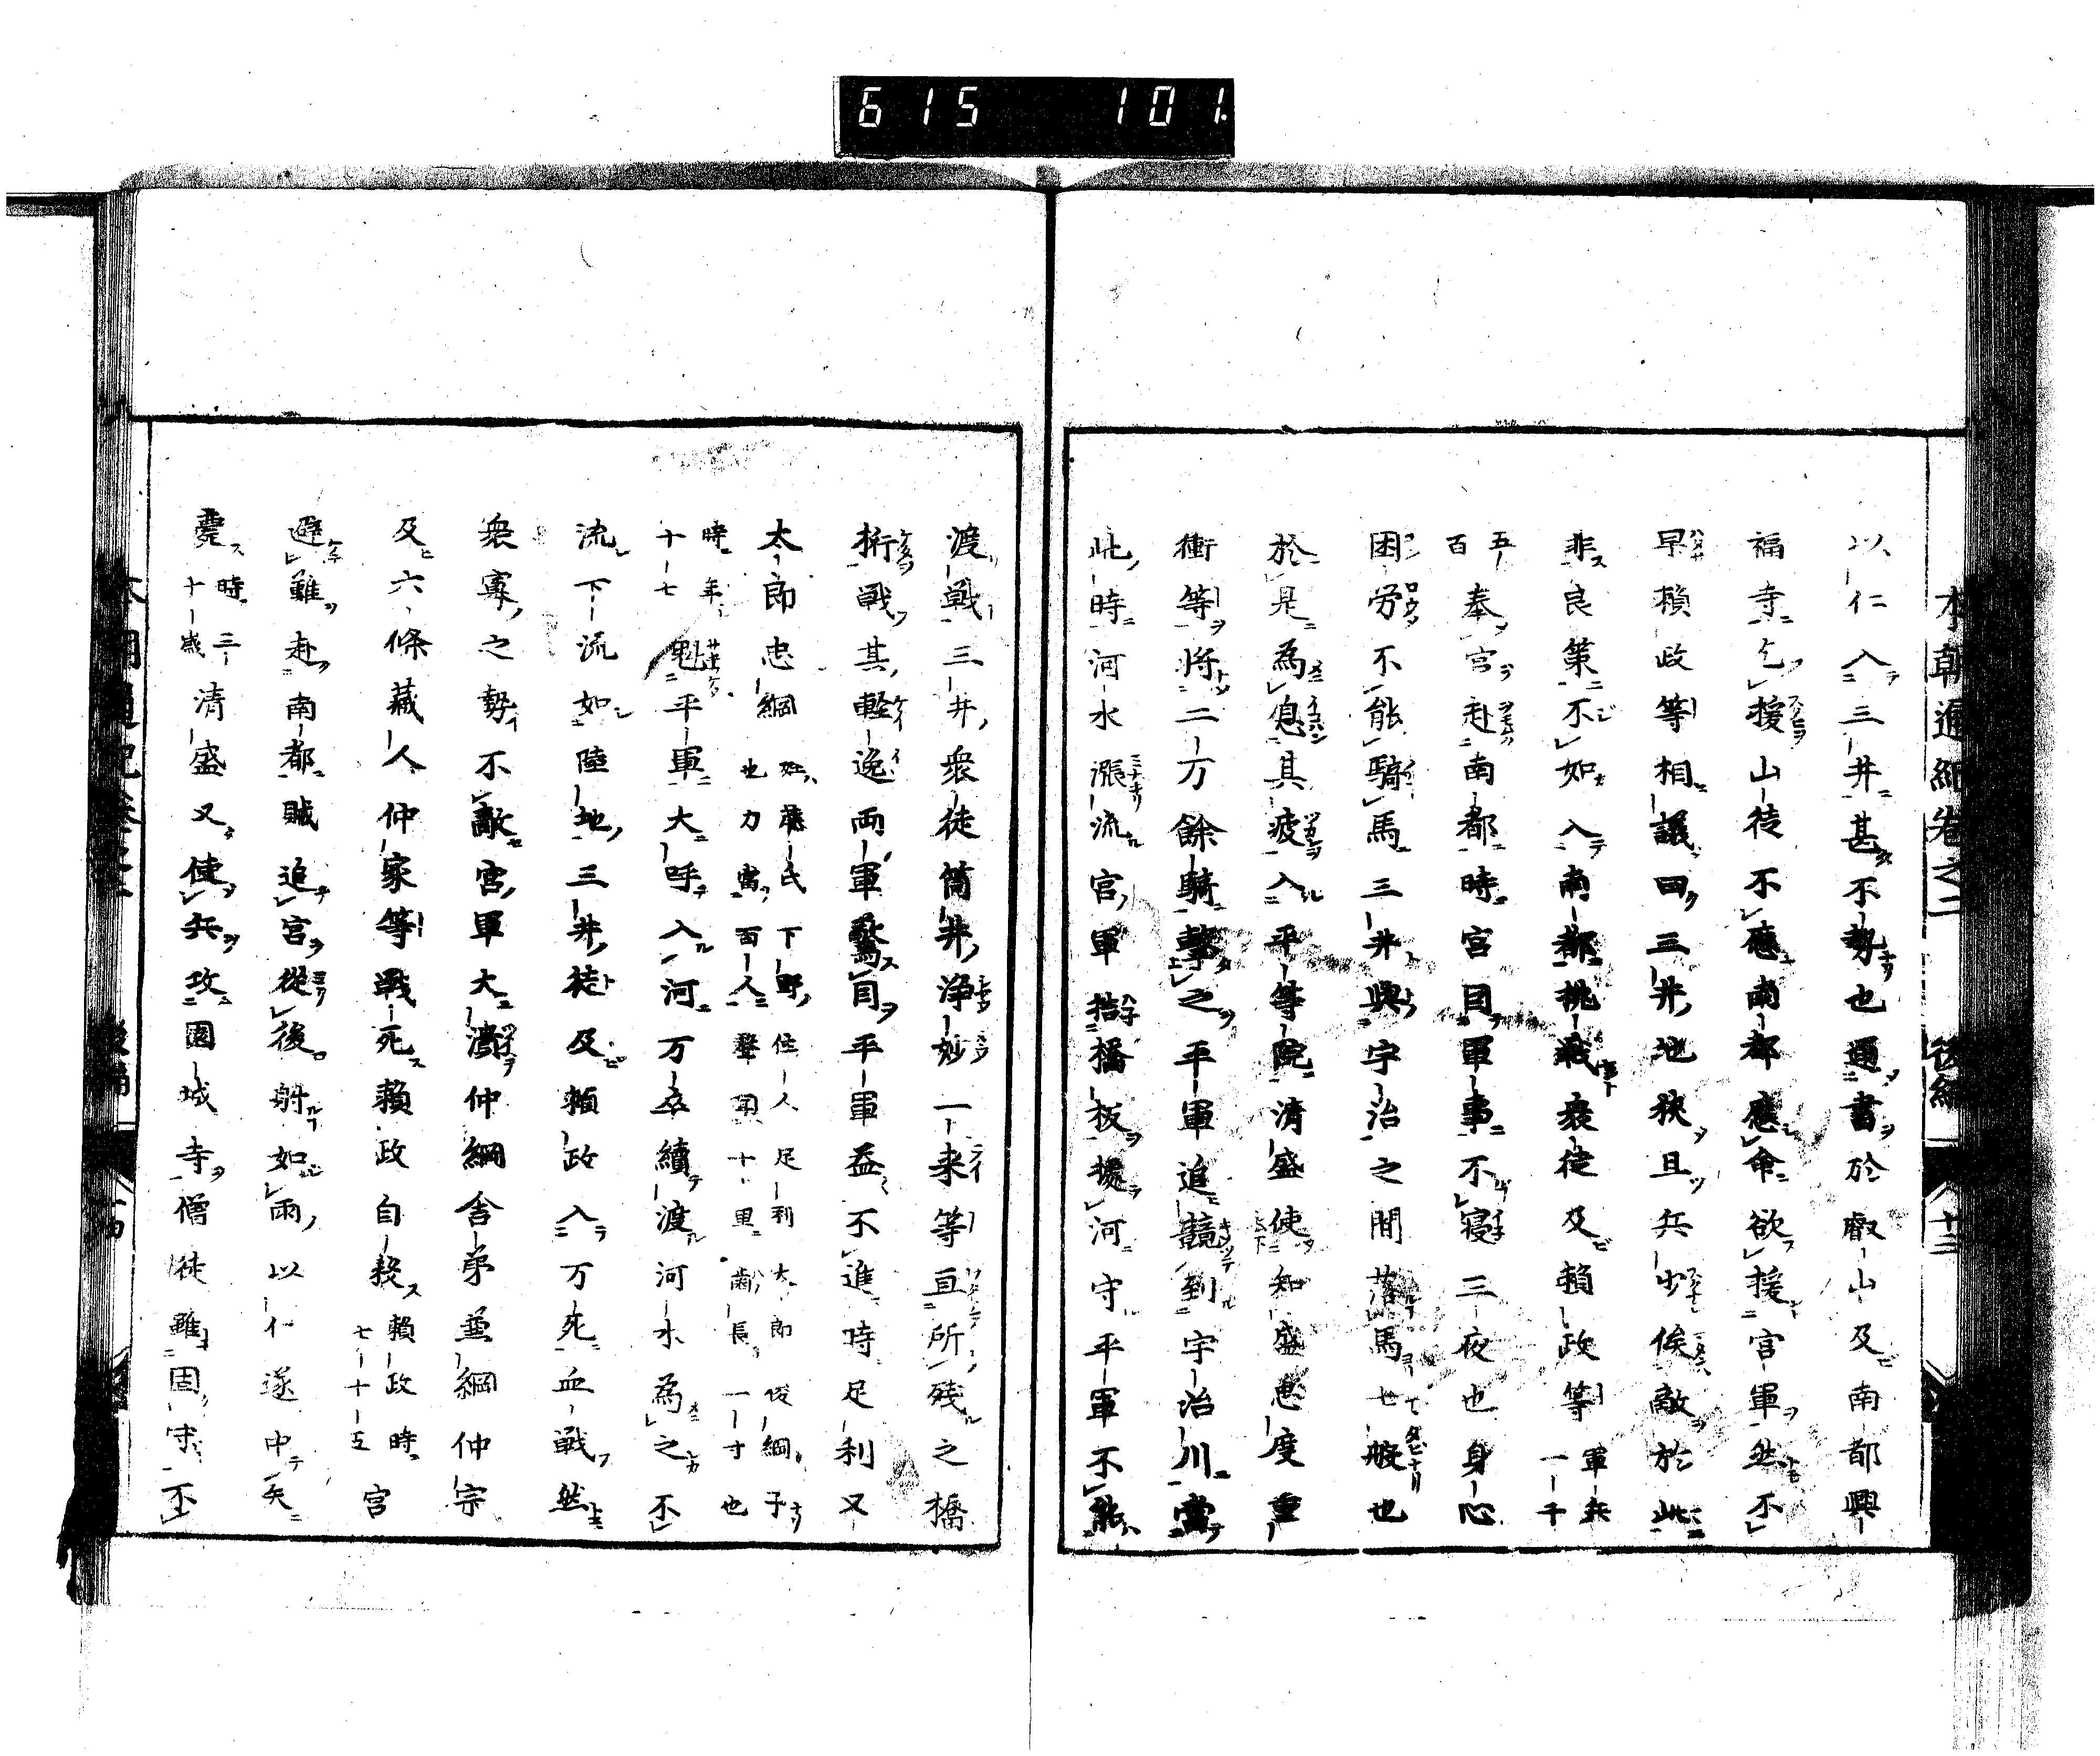 615 101
本朝通紀卷之二 後編 十三
以仁入三井甚不勢也通書於叡山及南都興
福寺乞援山徒不應南都應命欲援官軍然不
早賴政等相議曰三井地狹且兵少俟敵於此
非良策不如入南都挑戰衆徒及賴政等軍兵一千
五百奉宮赴南都時宮因軍事不寝三夜也身心
困労不能騎馬三井與宇治之間落馬七般也
於是為息其疲入平等院清盛使知盛忠度重
衝等将二万餘騎擊之平軍追競到宇治川當
此時河水漲流宮軍撦橋板擾河守平軍不能
渡戦三井衆徒筒井浄妙一来等亘所残之橋
桁戦其軽逸両軍驚目平軍益不進時足利又
太郎忠綱姓藤氏下野住人足利太郎俊綱子也力當百人聲聞十里齒長一寸也
時年十七魁平軍大呼入河万卒續渡河水為之不
流下流如陸地三井徒及賴政入万死血戦然
衆寡之勢不敵宮軍大潰仲綱舎弟兼綱仲宗
及六條藏人仲家等戦死賴政自殺賴政時七十五宮
避難赴南都賊追宮從後射如雨以仁遂中矢
薨時三十歳清盛又使兵攻園城寺僧徒雖固守不